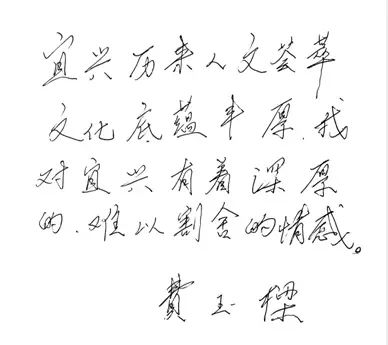 宜兴历来人文荟萃
文化底蕴丰厚.我
对宜兴有着深厚
的.难以割舍的情感。
费玉樑